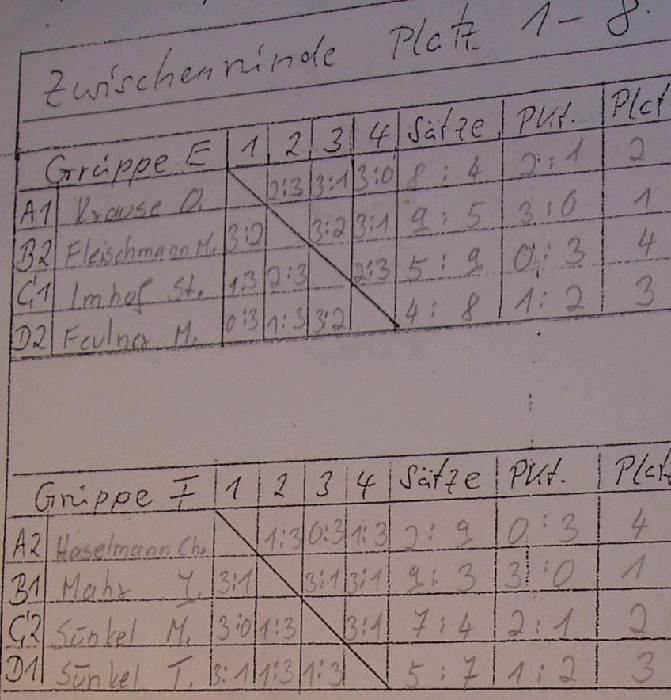 Zwischenrunde Platz 1-8.
Gruppe E 1 2 3 4 Sätze Pkt. Plat
A1 Krause O. 2:3 3:1 3:0 8:4 2:1 2
B2 Fleischmann M. 3:2 3:2 3:1 9:5 3:0 1
C1 Imhof St. 1:3 2:3 2:3 5:9 0:3 4
D2 Feulner M. 0:3 1:3 3:2 4:8 1:2 3
Gruppe F 1 2 3 4 Sätze Pkt. Platz
A2 Haselmann Ch. 1:3 0:3 1:3 2:9 0:3 4
B1 Mahr J. 3:1 3:1 3:1 9:3 3:0 1
C2 Sünkel M. 3:0 1:3 3:1 7:4 2:1 2
D1 Sünkel T. 3:1 1:3 1:3 5:7 1:2 3